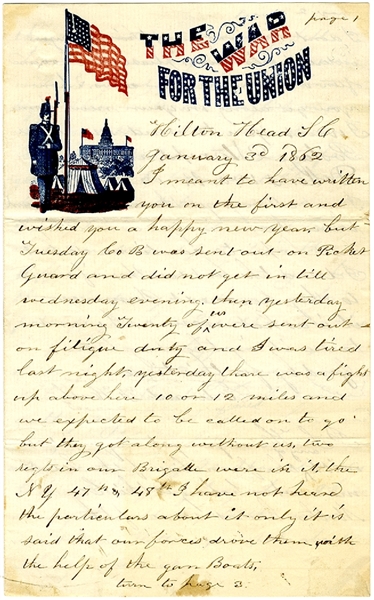 page 1
THE WAR
FOR THE UNION
Hilton Head S C
January 3d 1862
I meant to have written
you on the first and
wished you a happy new year but
Tuesday Co B was sent out on Picket
Guard and did not get in till
wednesday evening. then yesterday
morning Twenty of us were sent out
on fitigue duty and I was tired
last night, yesterday thare was a fight
up above here 10 or 12 miles and
we expected to be called on to go
but they got along without us, two
regts in our Brigade were in it, the
N Y 47th & 48th I have not heard
the particulars about it only it is
said that our forces drove them with
the help of the gun Boats,
turn to page 2.